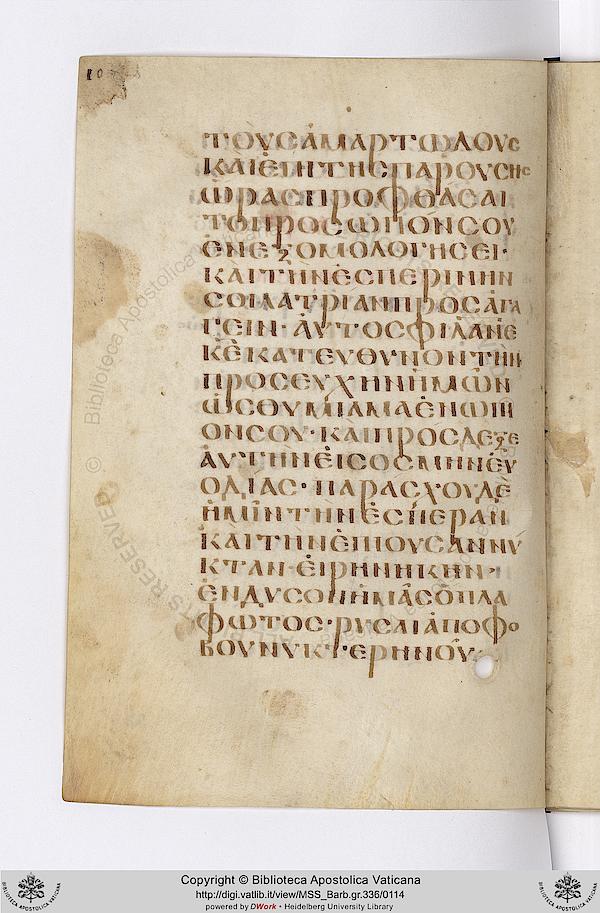 10
ΤΟΥΣ ἁΜΑΡΤΩΛΟΥΣ
ΚΑΙ ἐΠΙ ΤΗΣ ΠΑΡΟΥΣΗΣ
ὥΡΑΣ ΠΡΟΦΘΑΣΑΙ
ΤΟ ΠΡΟΣΩΠΟΝ ΣΟΥ
ἐΝ ΕΞΟΜΟΛΟΓΗΣΕΙ·
ΚΑΙ ΤΗΝ ἑΣΠΕΡΙΝΗΝ
ΣΟΙ ΛΑΤΡΙΑΝ ΠΡΟΣΑΓΑ
ΓΕΙΝ· ἀΥΤΟΣ ΦΙΛΑΝΕ
ΚΕ ΚΑΤΕΥΘΥΝΟΝ ΤΗΝ
ΠΡΟΣΕΥΧΗΝ ἡΜΩΝ
ὡΣ ΘΥΜΙΑΜΑ ἐΝΩΠΙ
ΟΝ ΣΟΥ· ΚΑΙ ΠΡΟΣΔΕΞΕ
ἀΥΤΗΝ ἐΙΣ ΟΣΜΗΝ ἐΥ
ΟΔΙΑΣ· ΠΑΡΑΣΧΟΥ ΔΕ
ἡΜΙΝ ΤΗΝ ἑΣΠΕΡΑΝ
ΚΑΙ ΤΗΝ ἐΠΙΟΥΣΑΝ ΝΥ
ΚΤΑΝ· ἐΙΡΗΝΗΚΗΝ·
ἐΝΔΥΣΟΝ ἡΜΑΣ ὅΠΛΑ
ΦΩΤΟΣ· ΡΥΣΑΙ ἀΠΟ ΦΟ
ΒΟΥ ΝΥΚΤ·ΕΡΗΝΟΥ
Copyright © Biblioteca Apostolica Vaticana
http://digi.vatlib.it/view/MSS_Barb.gr.336/0114
powered by DWork - Heidelberg University Library